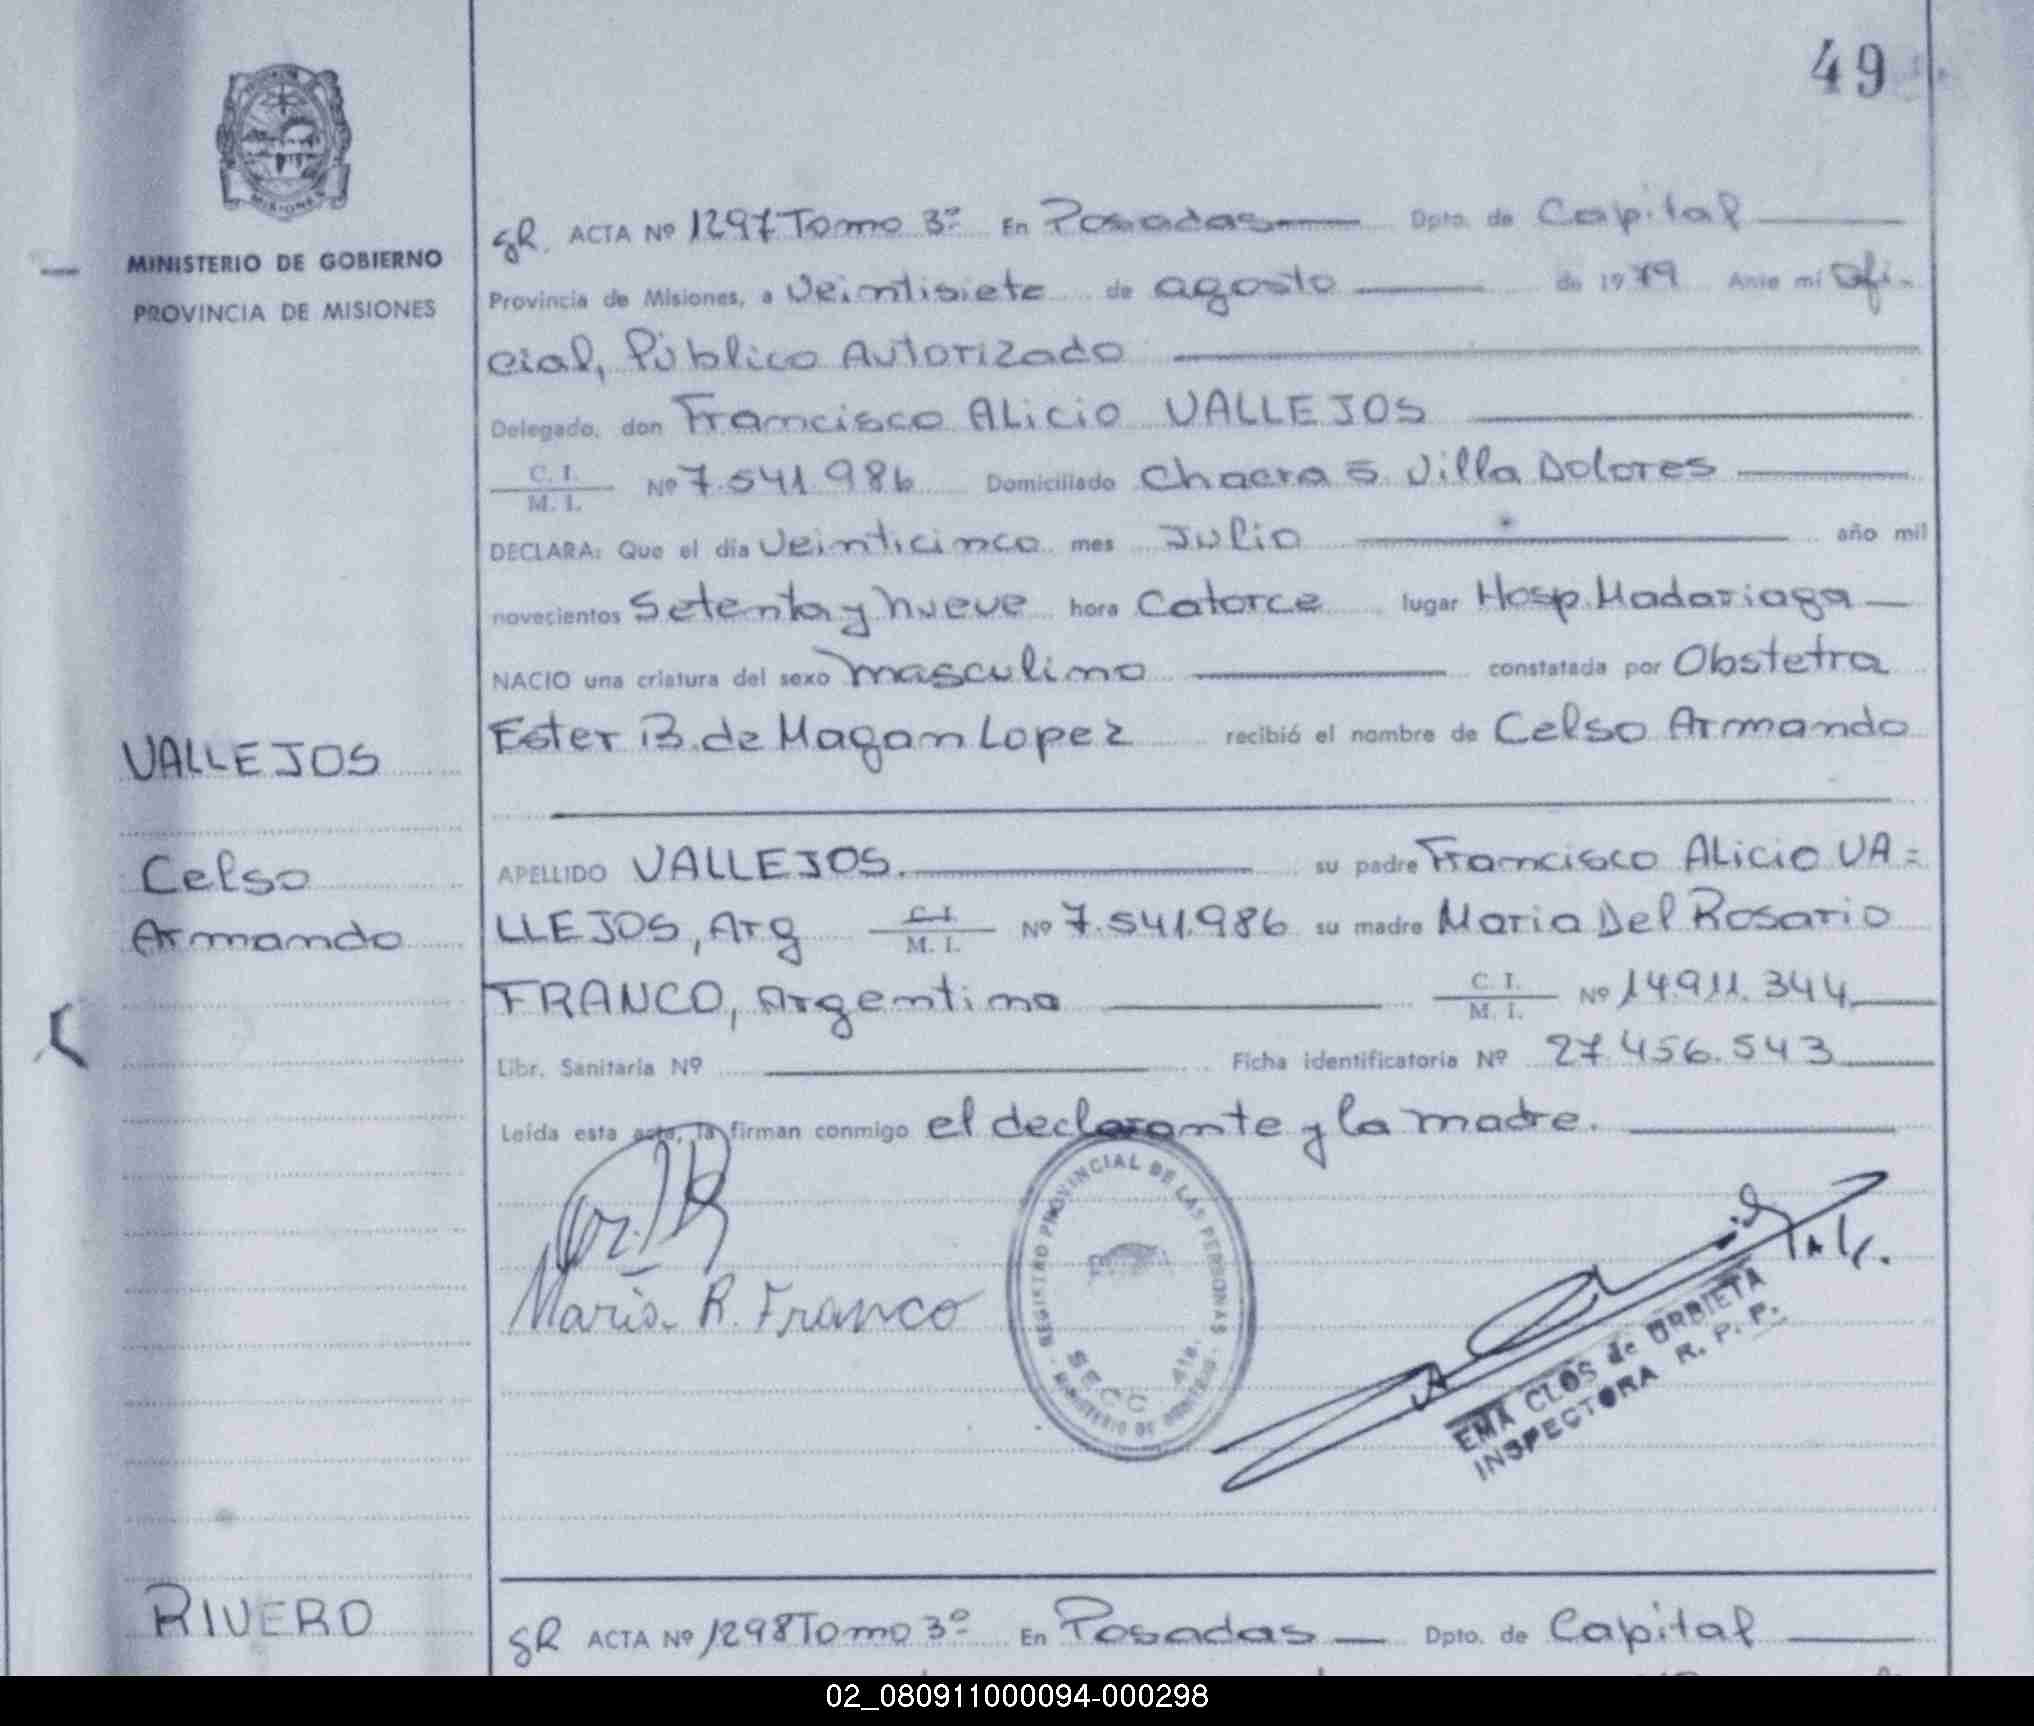 49
MISIONES
MINISTERIO DE GOBIERNO
PROVINCIA DE MISIONES
gR. ACTA Nº 1297 Tomo 3º En Posadas Dpto. de Capital
Provincia de Misiones, a Veintisiete de agosto de 1979 Ante mí Ofi-
cial, Público Autorizado
Delegado, don Francisco Alicio VALLEJOS
C. I.
M. I. Nº 7.541.986 Domiciliado Chacra 5. Villa Dolores
DECLARA: Que el día Veinticinco mes Julio año mil
novecientos Setenta y nueve hora Catorce lugar Hosp. Madariaga
NACIO una criatura del sexo masculino constatada por Obstetra
Ester B. de Magan Lopez recibió el nombre de Celso Armando
VALLEJOS
Celso
Armando
APELLIDO VALLEJOS. su padre Francisco Alicio VA=
LLEJOS, Arg C. I. M. I. Nº 7.541.986 su madre Maria Del Rosario
FRANCO, Argentina C. I. M. I. Nº 14.911.344
Libr. Sanitaria Nº Ficha identificatoria Nº 27.456.543
Leída esta acta, la firman conmigo el declarante y la madre.
Maria R. Franco
REGISTRO PROVINCIAL DE LAS PERSONAS
SECC. 4ta.
MINISTERIO DE GOBIERNO
EMA CLOS de URBIETA
INSPECTORA R. P. P.
RIVERO
gR ACTA Nº 1298 Tomo 3º En Posadas Dpto. de Capital
02_080911000094-000298